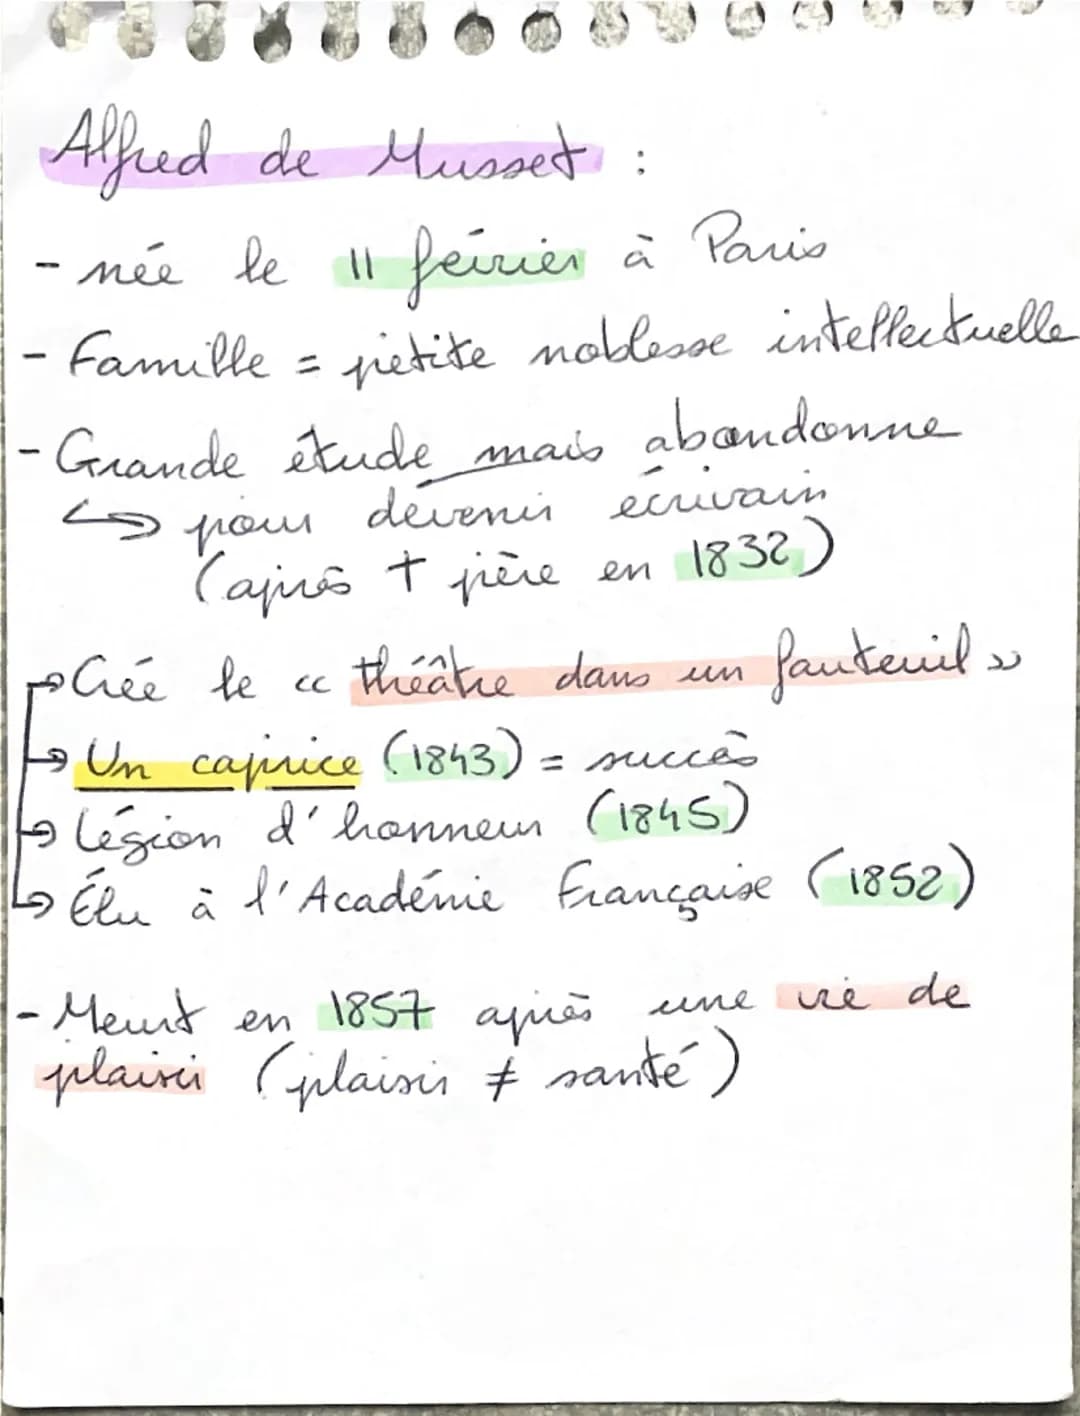 Alfred de Musset :
- née le 11 février à Paris
- Famille = petite noblesse intellectuelle
- Grande étude mais abandonne
↳ pour devenir écrivain
(après † père en 1832)
→ Créé le « théâtre dans un fauteuil »
→ Un caprice (1843) = succès
→ Légion d'honneur (1845)
→ Élu à l'Académie Française (1852)
- Meurt en 1857 après une vie de
plaisir (plaisir ≠ santé)